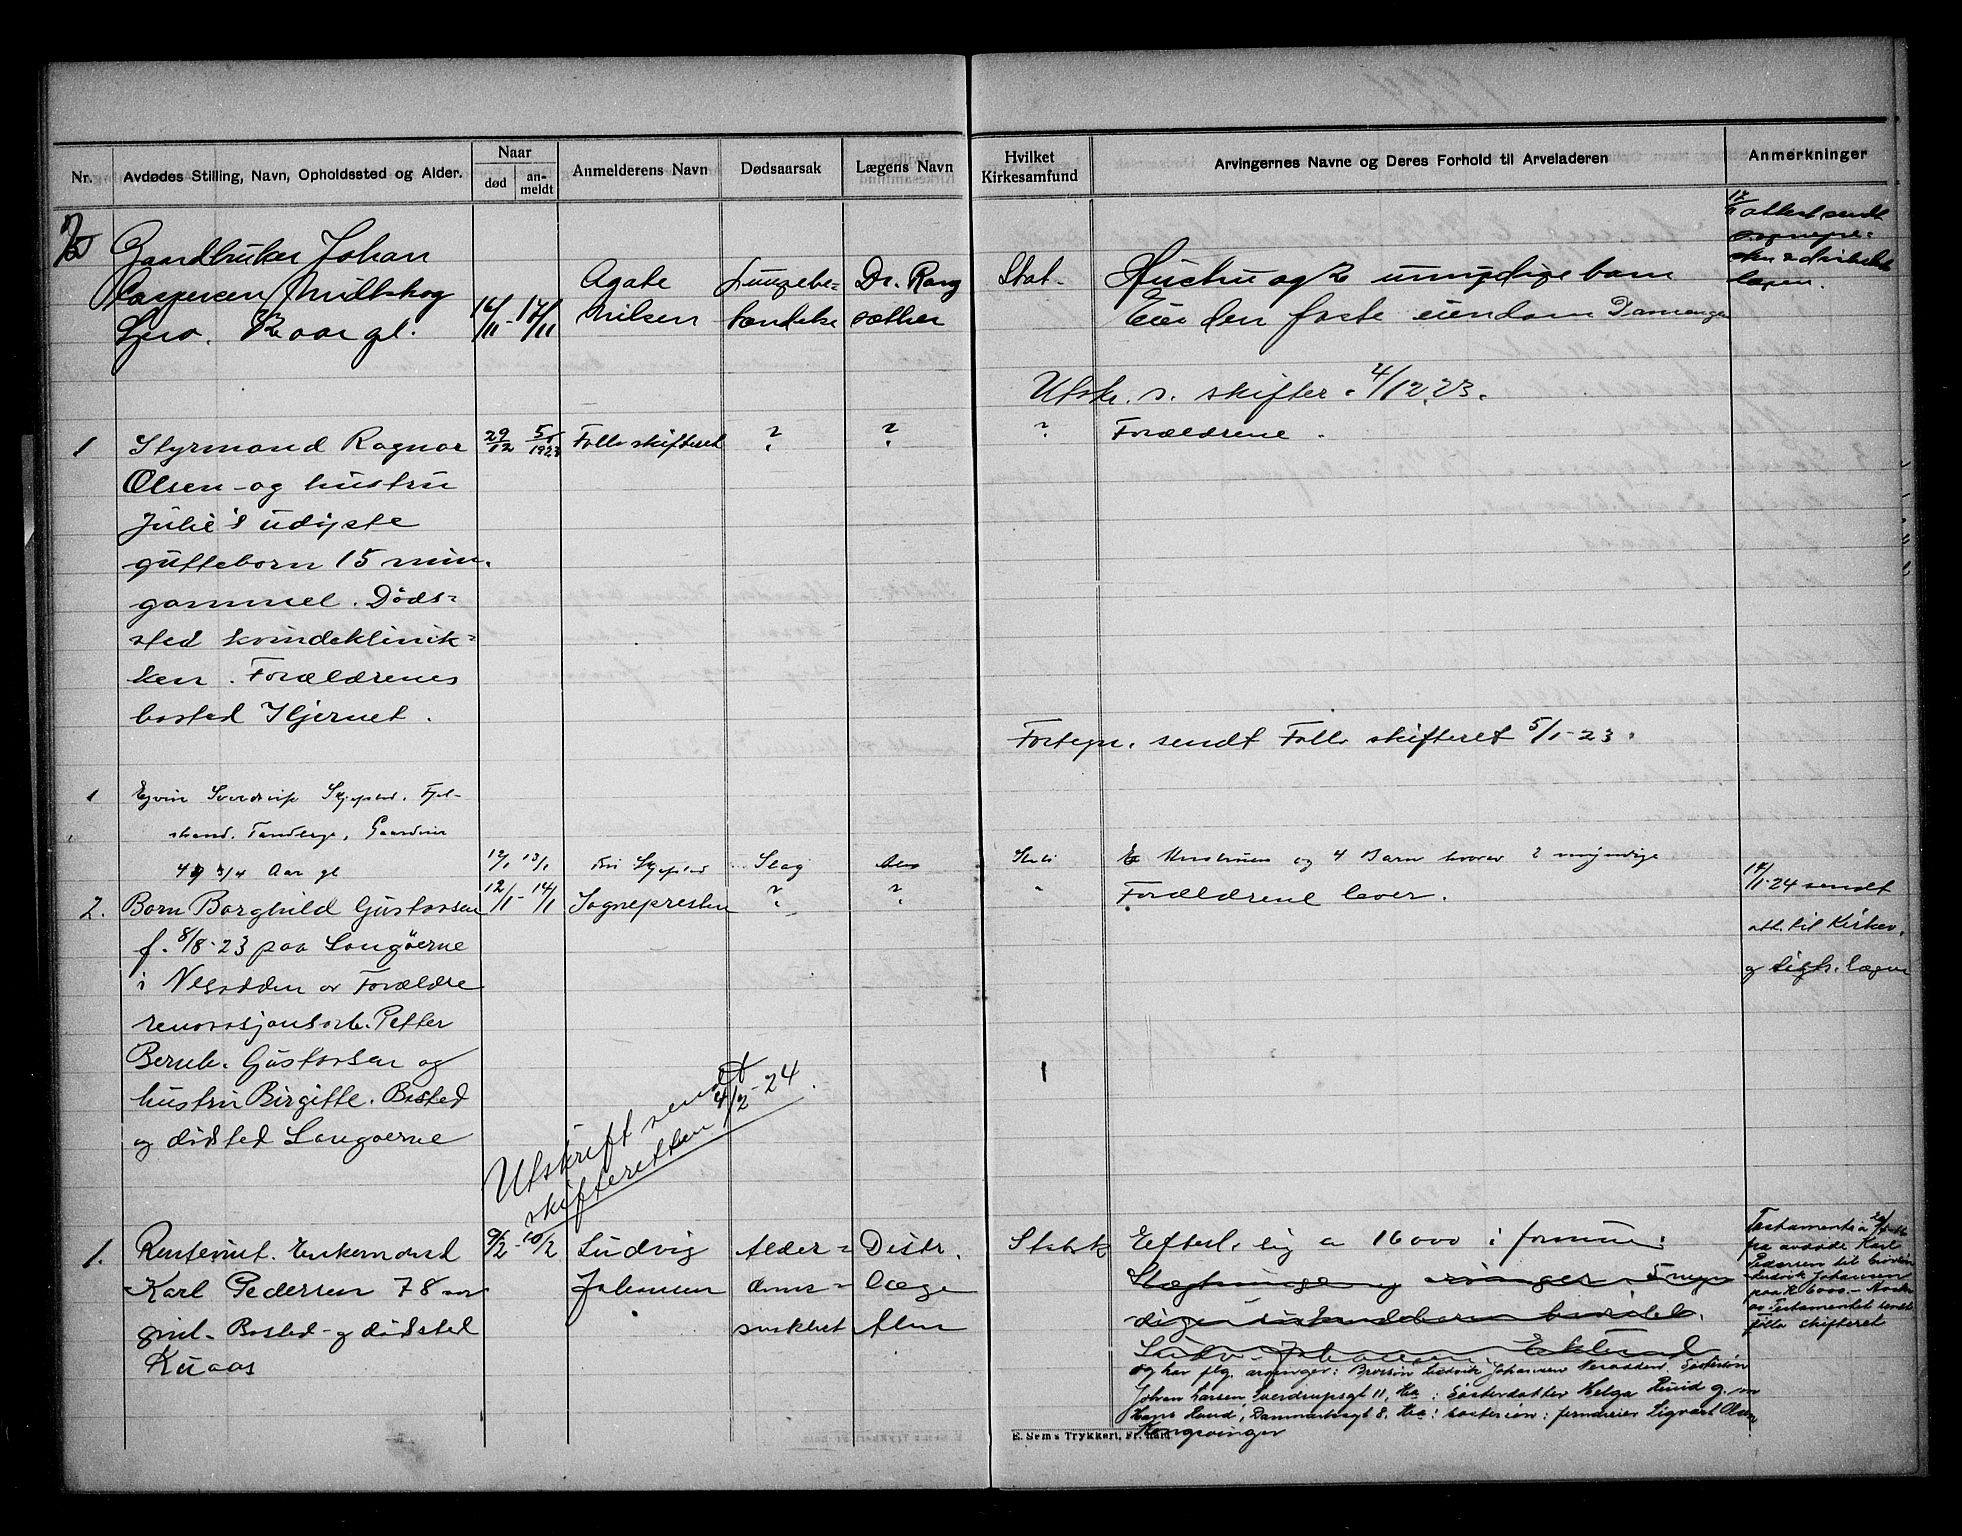 Nr.
Avdødes Stilling, Navn, Opholdssted og Alder.
Naar
død
an-
meldt
Anmelderens Navn
Dødsaarsak
Lægens Navn
Hvilket
Kirkesamfund
Arvingernes Navne og Deres Forhold til Arveladeren
Anmerkninger
Gaardbruker Johan
Caspersen
aar gl.
16/11 - 17/11
Agate
Nilsen
Lungebe-
tændelse
Dr. Rang
sæther
Stat-
Hustru og 2 umyndige barn
Eier den faste eiendom
attest sendt
lægen.
Utskr. s. skifter. 4/12.23.
1
Styrmand Ragnar
Olsen og hustru
Julie's udøpte
guttebarn 15 min.
gammel. Døds-
sted kvindeklinik-
ken. Forældrenes
bosted Hjernet.
29/12
5/1 1923
Follo skifteret
?
?
?
Forældrene.
Fortegn. sendt Follo skifteret 5/1-23.
1
Ejvin Sverdrup Skjefstad. Fjel-
strand.
3/4 Aar gl
12/1
13/1
Slag
Hustruen og 4 Barn hvorav 2 myndige
2.
Barn Borghild Gustavsen
f. 8/8-23 paa Langøerne
i Nesodden av Forældre
renovasjonsarb. Petter
Bernh. Gustavsen og
hustru Birgitte. Bosted
og dødsted Langøerne
12/1 - 14/1
Sognepresten
?
?
"
Forældrene lever.
14/1-24 sendt
att. til Kirkev.
og distr. lægen
Utskrift sendt
skifteretten 4/2-24.
1.
Rentenist. Enkemand
Karl Pedersen 78 aar
gml. Bosted og dødsted
Kuaas
9/2 - 10/2
Ludvig
Johansen
Alder-
doms-
svakhet
Distr.
læge
Statsk
Efterl. sig ca 16000 i formue
og har flg. arvinger: Brorsøn Ludvik Johansen Nesodden. Søstersøn
Johan Larsen, Sverdrupsgt 11, Kra: Søsterdatter Helga Ruud g. m
Hans Ruud, Danmarksgt 8. Kra: søstersøn: Sigvart Olsen
Kongsvinger
paa avdøde Karl
Pedersen til brorsøn
Ludvik Johansen
av Testamentet sendt
Follo skifteret
E. Sem's Trykkeri, Fr.hald